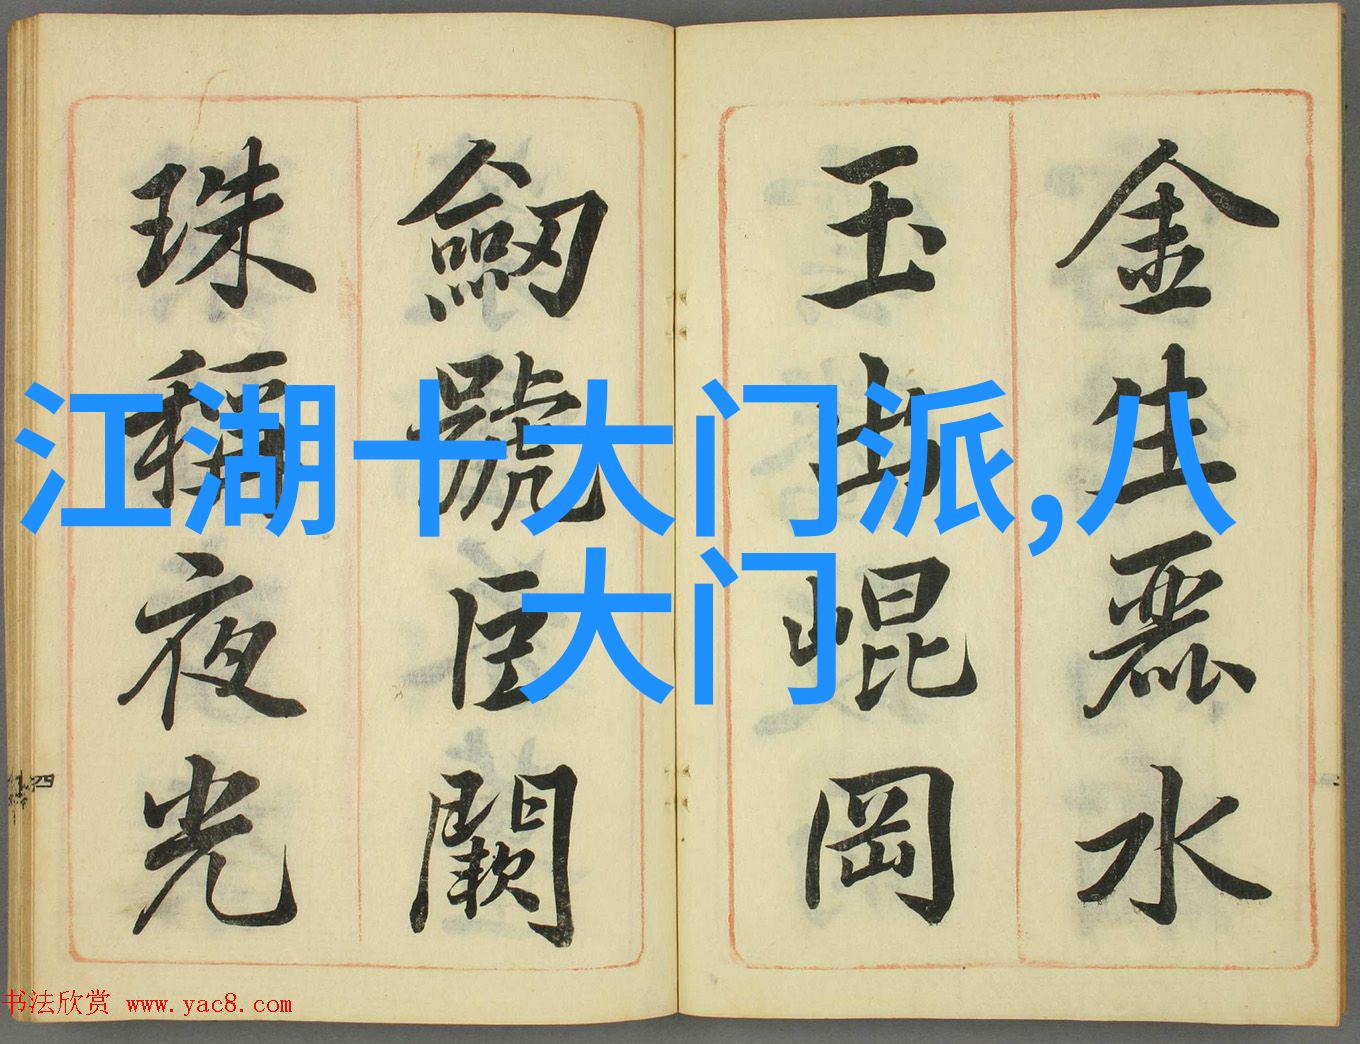 金生麗水
玉出崐岡
劒號巨闕
珠稱夜光
江湖十大门派,八
大门
四
书法欣赏 www.yac8.com